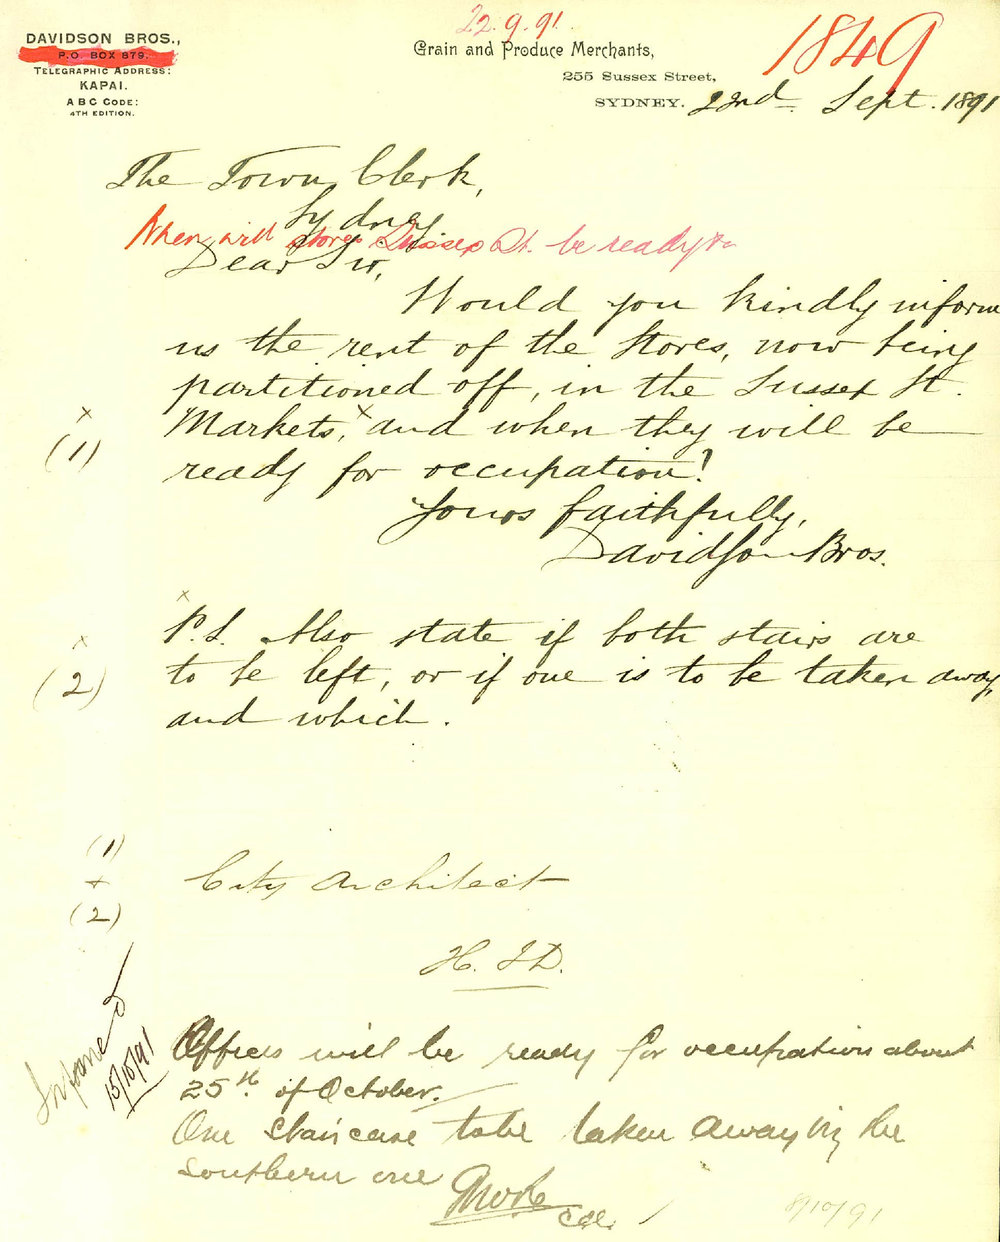 22.9.91
1849
DAVIDSON BROS.,
P.O. BOX 879.
TELEGRAPHIC ADDRESS:
KAPAI.
A B C CODE:
4TH EDITION.
Grain and Produce Merchants,
255 Sussex Street,
SYDNEY. 22nd Sept. 1891
The Town Clerk,
Sydney
When will stores Sussex St. be ready
Dear Sir,
Would you kindly inform
us the rent of the Stores, now being
partitioned off, in the Sussex St.
Markets, x and when they will be
x
(1)
ready for occupation?
Yours faithfully,
Davidson Bros.
x
P.S. Also state if both stairs are
x
(2)
to be left, or if one is to be taken away,
and which.
(1)
+
(2)
City Architect
H. S D.
15/10/91
Offices will be ready for occupation about
25th. of October.
One staircase to be taken away viz the
southern one
8/10/91